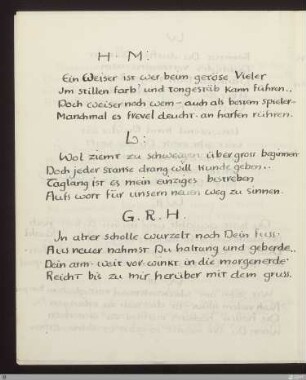 H M:
Ein Weiser ist wer beim getöse Vieler
Im stillen farb' und tongestäb kann führen..
Doch weiser noch wem - auch als bestem spieler -
Manchmal es frevel deucht - an harfen rühren.
L:
Wol ziemt zu schweigen über gross beginnen
Doch jeder starke drang will kunde geben..
Taglang ist es mein einziges bestreben
Aufs wort für unsern neuen weg zu sinnen.
G. R. H.
In alter scholle wurzelt noch Dein fuss.
Aus neuer nahmst Du haltung und geberde..
Dein arm weit vor winkt in die morgenerde
Reicht bis zu mir herüber mit dem gruss.